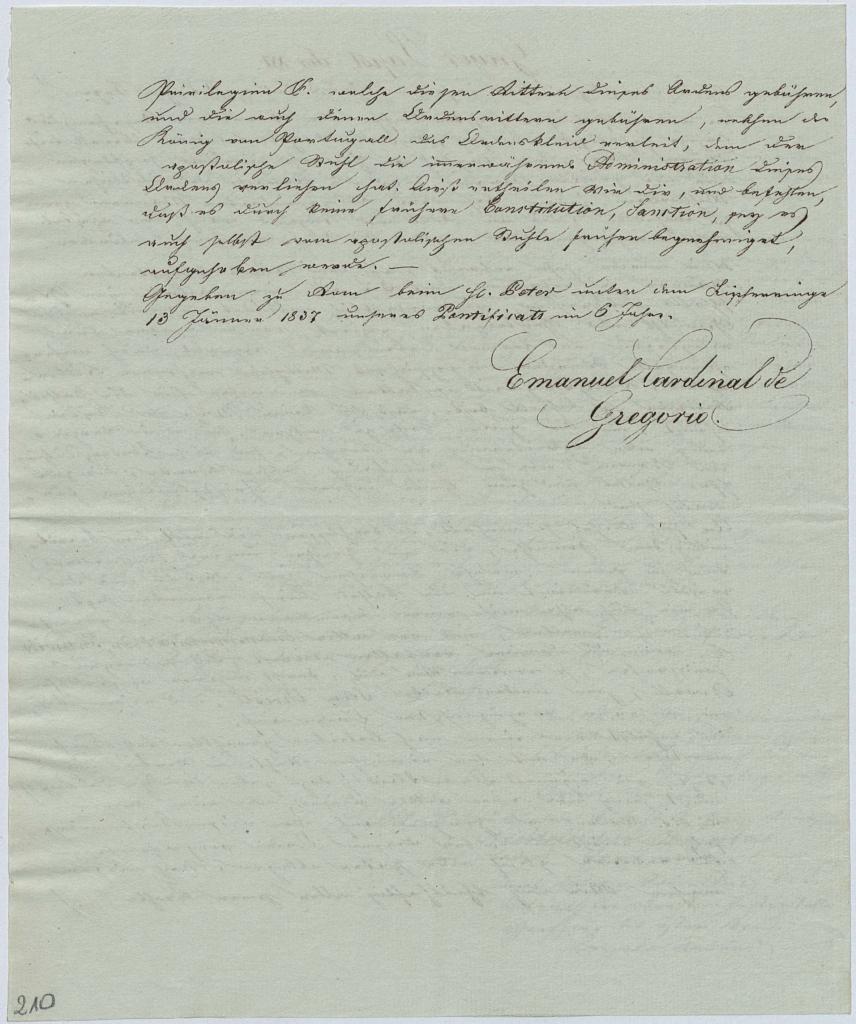 Privilegien &. welche diesen Rittern dieses Ordens gebühren,
und die auch denen Ordensrittern gebühren, welchen der
König von Portugall das Ordenskleid verleit, dem der
apostolische Stuhl die immerwährende Administration dieses
Ordens verliehen hat. Dieß ertheilen Wir dir, und befehlen,
daß es durch keine frühere Constitution, Sanction, sey es
auch selbst vom apostolischen Stuhle früher begnehmiget,
aufgehoben werde. —
Gegeben zu Rom beim hl. Peter unter dem Fischerringe
13 Jänner 1837 unseres Pontificats im 6 Jahre.
Emanuel Cardinal de
Gregorio.
210